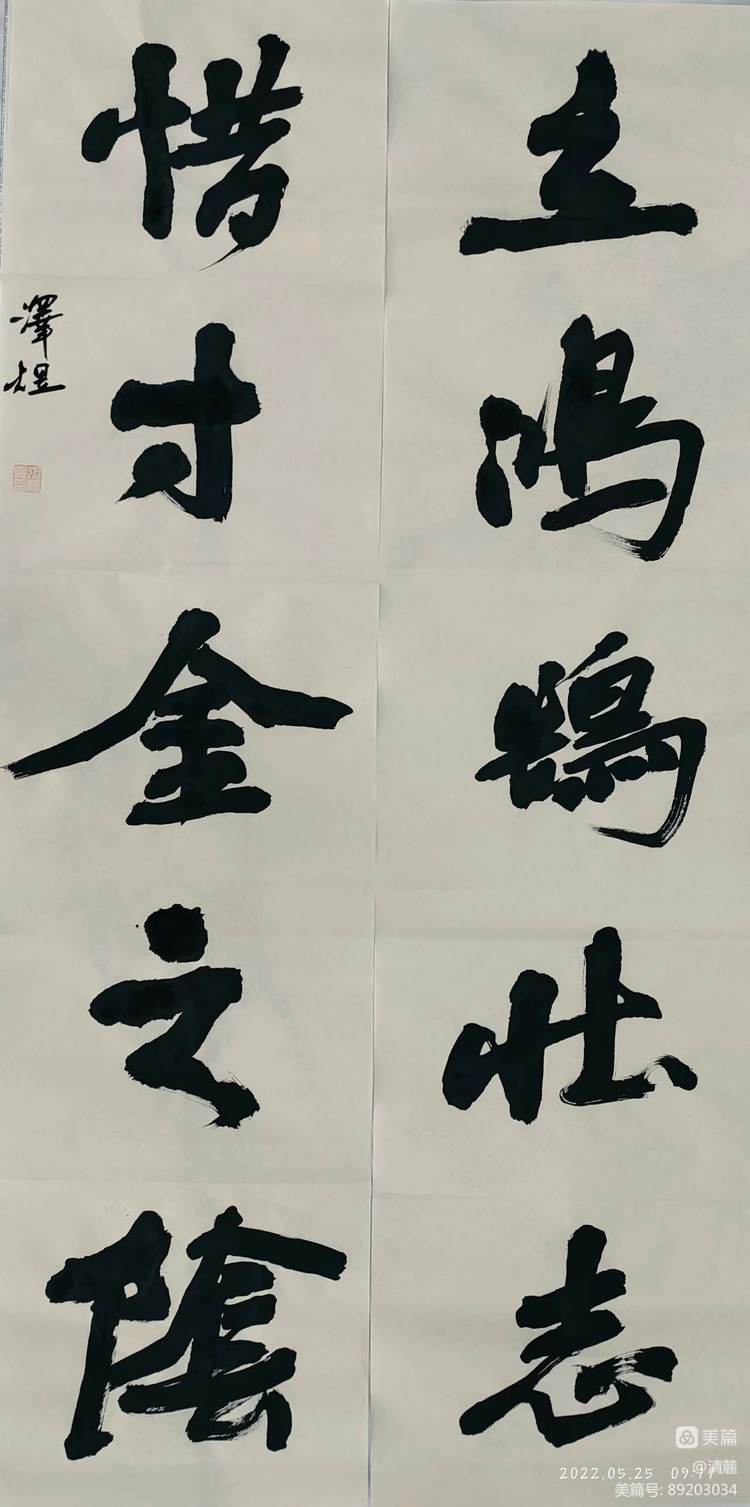 立鸿鹄壮志
惜寸金之陰
澤煜
美篇
@清麓
2022.05.25 09:11
美篇号: 89203034